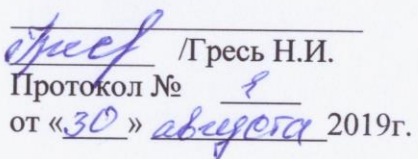 /Гресь Н.И.
Протокол № 1
от «30» августа 2019г.